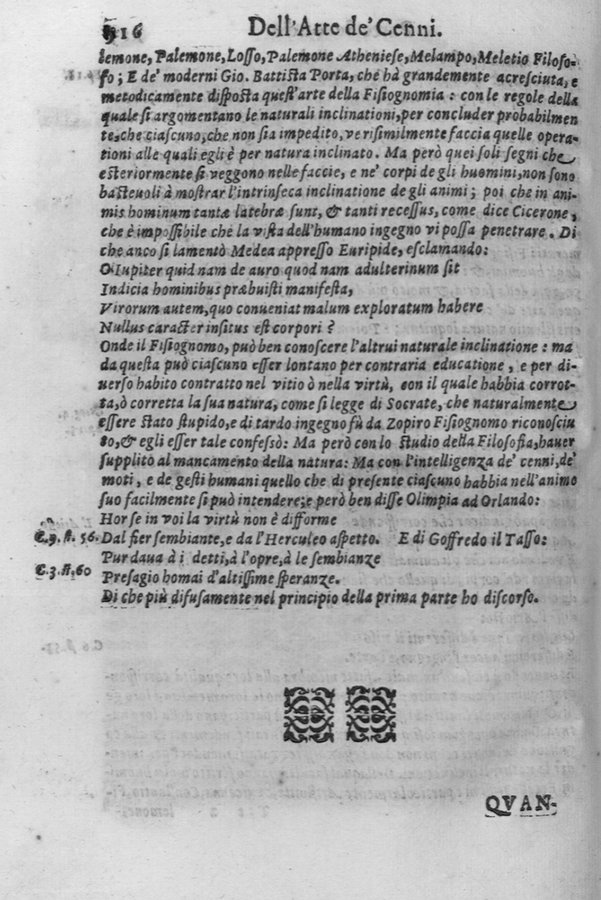 116 Dell'Arte de' Cenni.
lemone, Palemone, Losso, Palemone Atheniese, Melampo, Meletio Filoso-
fo; E de' moderni Gio. Battista Porta, che hà grandemente acresciuta, e
metodicamente disposta quest'arte della Fisiognomia: con le regole della
quale si argomentano le naturali inclinationi, per concluder probabilmen
te, che ciascuno, che non sia impedito, verisimilmente faccia quelle opera-
tioni alle quali egli è per natura inclinato. Ma però quei soli segni che
esteriormente si veggono nelle faccie, e ne' corpi de gli huomini, non sono
basteuoli à mostrar l'intrinseca inclinatione de gli animi; poi che in ani-
mis hominum tantæ latebræ sunt, & tanti recessus, come dice Cicerone,
che è impossibile che la vista dell'humano ingegno vi possa penetrare. Di
che anco si lamentò Medea appresso Euripide, esclamando:
O Iupiter quid nam de auro quod nam adulterinum sit
Indicia hominibus præbuisti manifesta,
Virorum autem, quo conueniat malum exploratum habere
Nullus caracter insitus est corpori?
Onde il Fisiognomo, può ben conoscere l'altrui naturale inclinatione: ma
da questa può ciascuno esser lontano per contraria educatione, e per di-
uerso habito contratto nel vitio ò nella virtù, con il quale habbia corrot-
ta, ò corretta la sua natura, come si legge di Socrate, che naturalmente
essere stato stupido, e di tardo ingegno fù da Zopiro Fisiognomo riconosciu
to, & egli esser tale confessò: Ma però con lo studio della Filosofia, hauer
supplito al mancamento della natura: Ma con l'intelligenza de' cenni, de'
moti, e de gesti humani quello che di presente ciascuno habbia nell'animo
suo facilmente si può intendere; e però ben disse Olimpia ad Orlando:
Hor se in voi la virtù non è difforme
C. 9. st. 56. Dal fier sembiante, e da l'Herculeo aspetto. E di Goffredo il Tasso:
Pur daua à i detti, à l'opre, à le sembianze
C. 3. st. 60 Presagio homai d'altissime speranze.
Di che più difusamente nel principio della prima parte ho discorso.
QVAN-